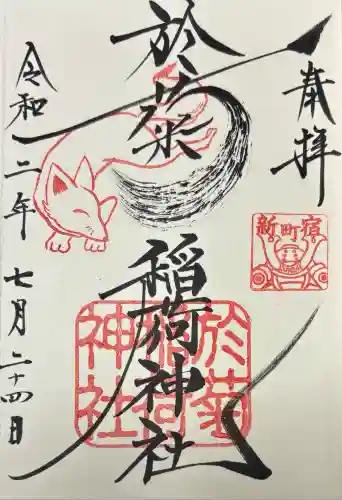 奉拝
新町宿
於菊
稲荷神社
於菊
稲荷
神社
令和二年七月二十四日